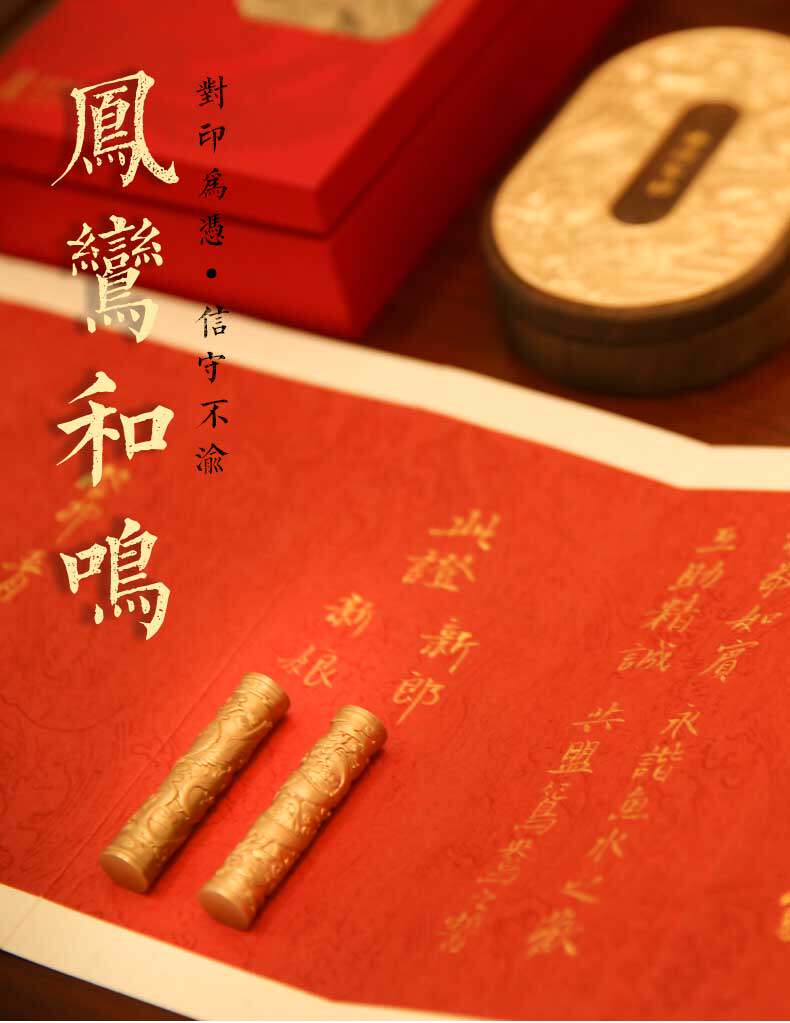 鳳鸞和鳴
對印為憑·信守不渝
敬如賓
互助精誠
永諧魚水之歡
共盟鴛鴦之誓
此證
新郎
新娘